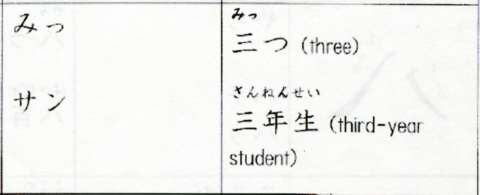 みっ
みっ
三つ (three)
サン
さんねんせい
三年生 (third-year
student)